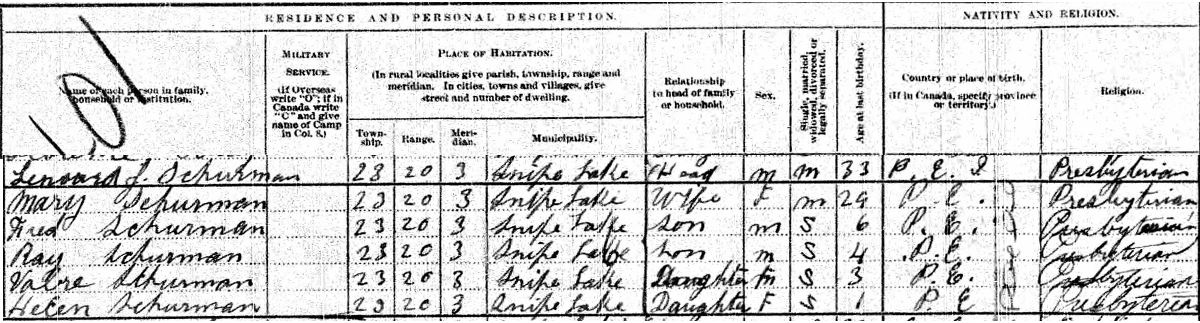 RESIDENCE AND PERSONAL DESCRIPTION. NATIVITY AND RELIGION.
101
Name of each person in family, household or institution.
MILITARY SERVICE.
(If Overseas write "O"; if in Canada write "C" and give name of Camp in Col. 8.)
PLACE OF HABITATION.
(In rural localities give parish, township, range and meridian. In cities, towns and villages, give street and number of dwelling.
Township. Range. Meridian. Municipality.
Relationship to head of family or household.
Sex.
Single, married, widowed, divorced or legally separated.
Age at last birthday.
Country or place of birth.
(If in Canada, specify province or territory.)
Religion.
Lenoard J. Schurman 23 20 3 Snipe Lake Head m m 33 P. E. I Presbyterian
Mary Schurman 23 20 3 Snipe Lake Wife F m 29 P. E. Presbyterian
Fred Schurman 23 20 3 Snipe Lake son m S 6 P. E. Presbyterian
Ray Schurman 23 20 3 Snipe Lake son m S 4 P. E. Presbyterian
Schurman 23 20 3 Snipe Lake Daughter S 3 P. E. Presbyterian
Helen Schurman 23 20 3 Snipe Lake Daughter F S 1 P. E Presbyterian